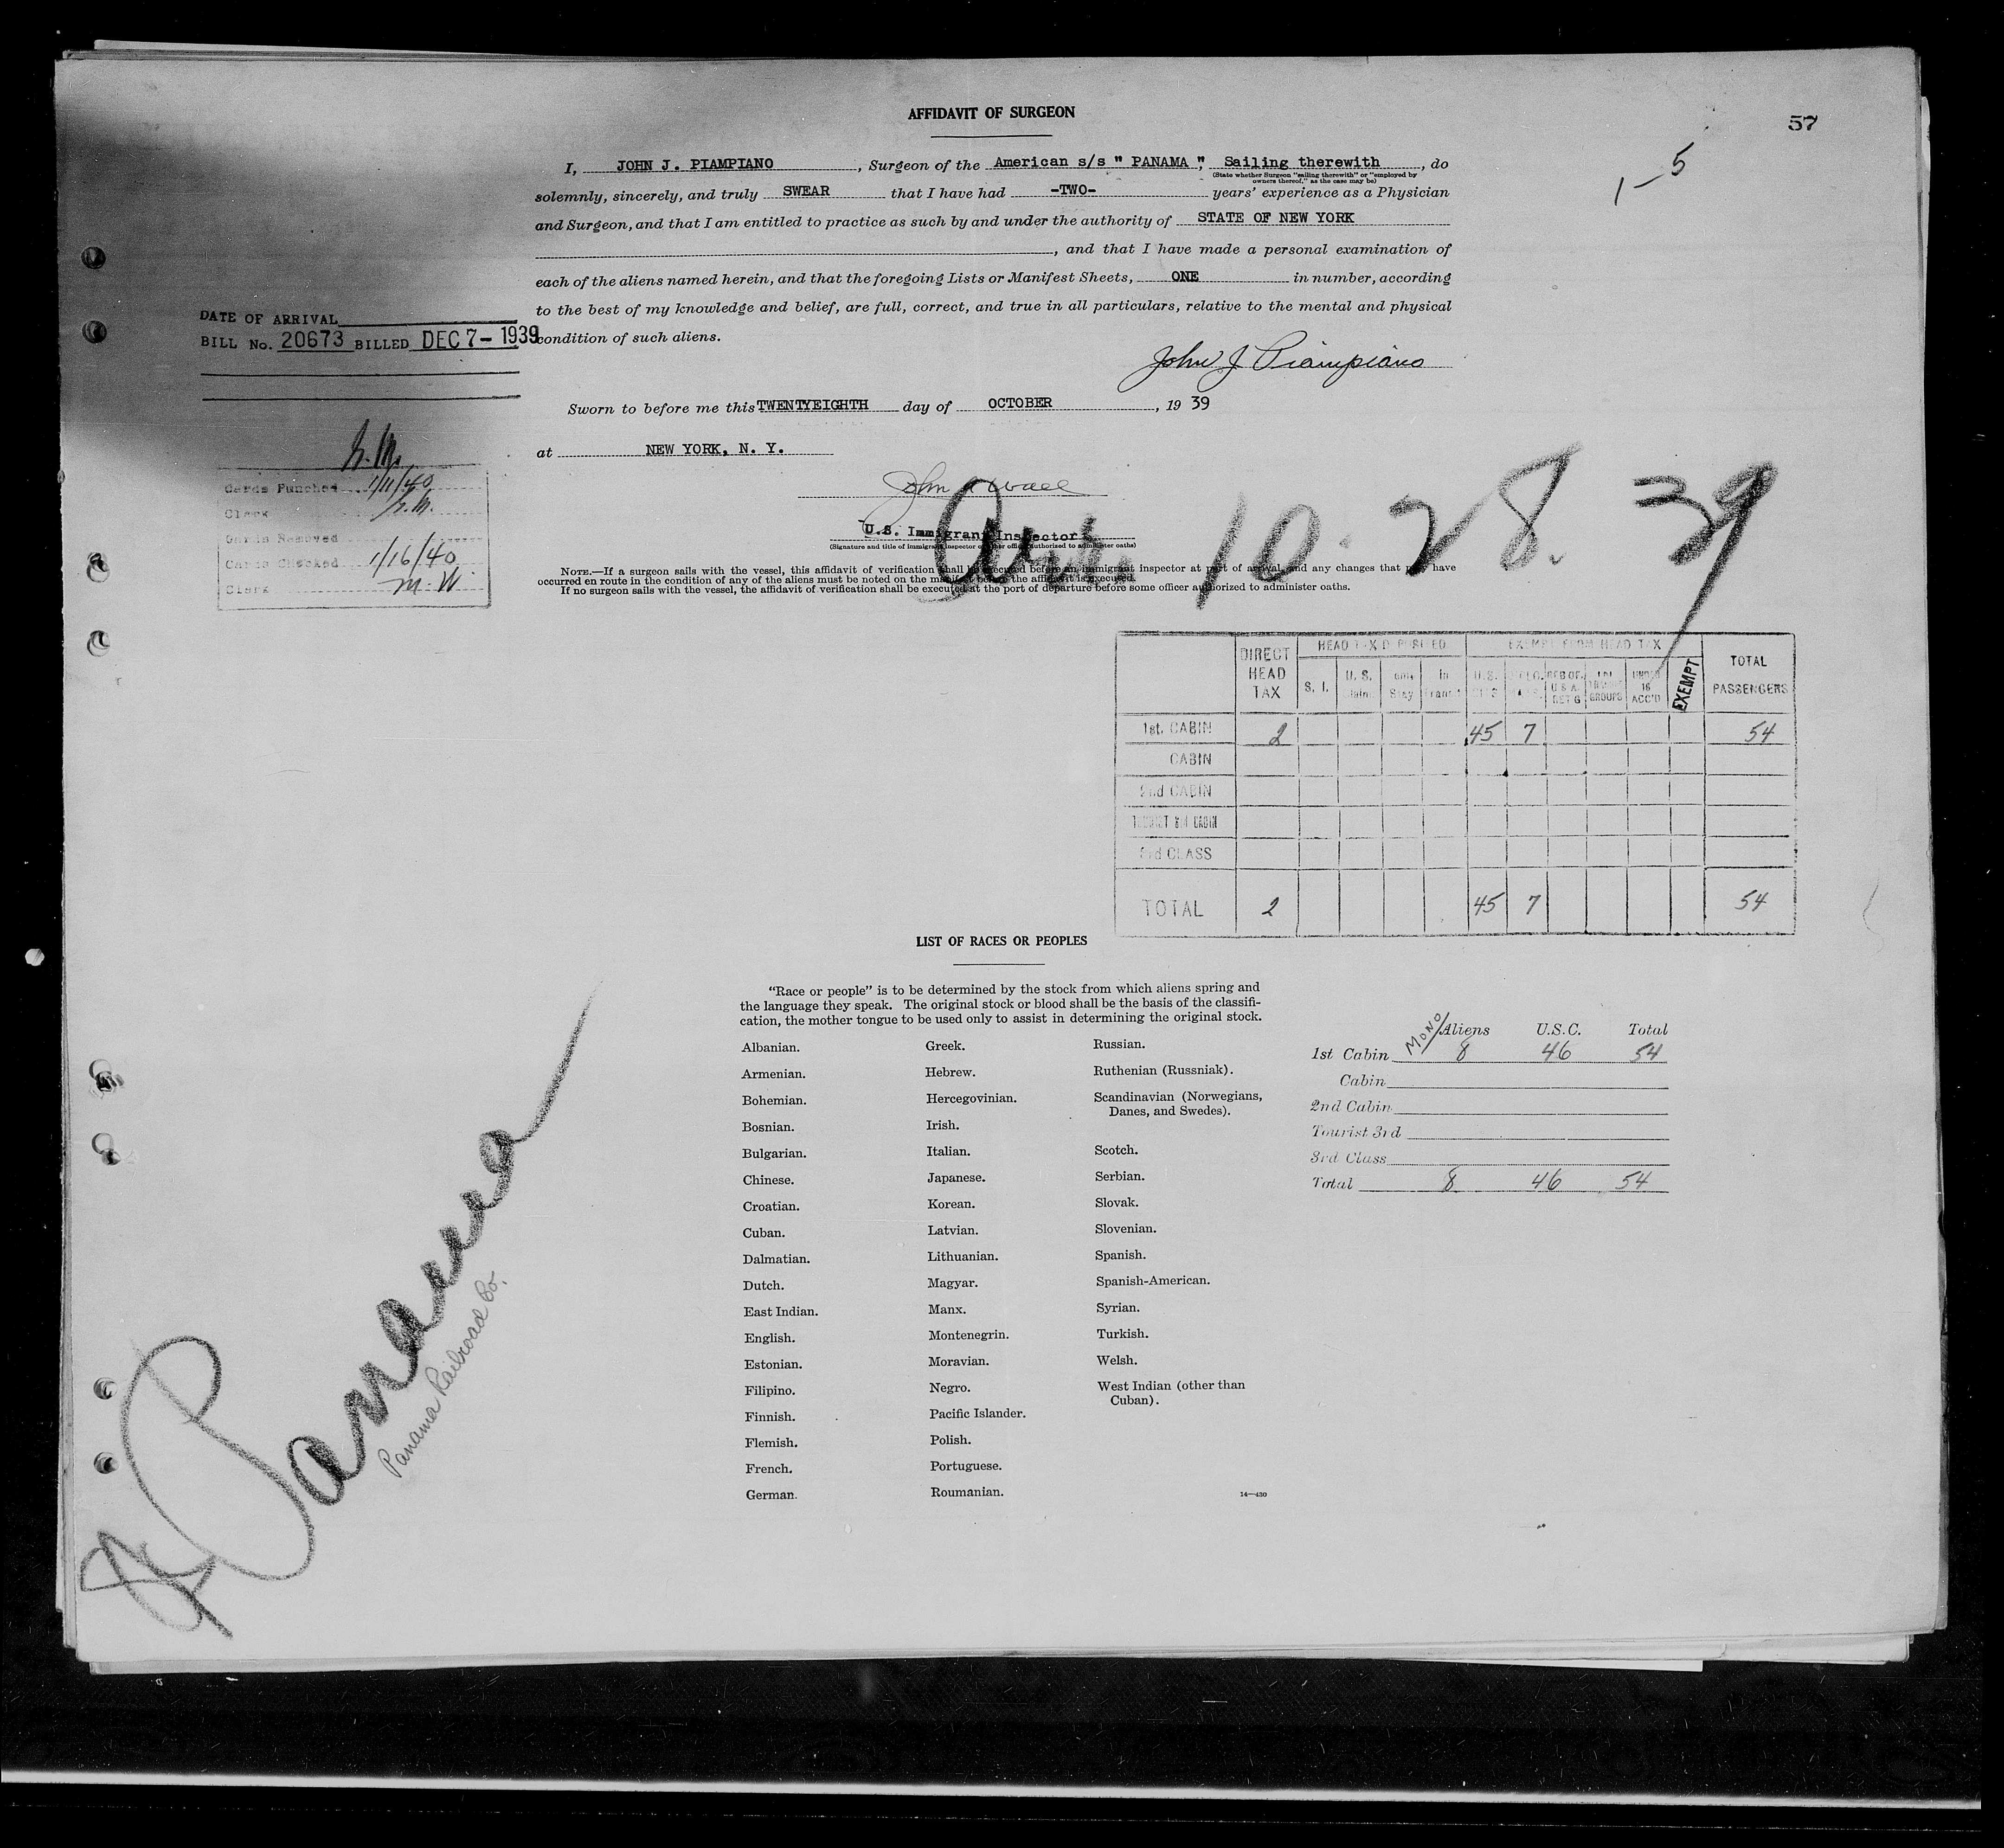 AFFIDAVIT OF SURGEON
57
1-5
I, JOHN J. PIAMPIANO, Surgeon of the American s/s "PANAMA", Sailing therewith, do
(State whether Surgeon "sailing therewith" or "employed by
owners thereof," as the case may be)
solemnly, sincerely, and truly SWEAR that I have had -TWO- years' experience as a Physician
and Surgeon, and that I am entitled to practice as such by and under the authority of STATE OF NEW YORK
, and that I have made a personal examination of
each of the aliens named herein, and that the foregoing Lists or Manifest Sheets, ONE in number, according
to the best of my knowledge and belief, are full, correct, and true in all particulars, relative to the mental and physical
condition of such aliens.
DATE OF ARRIVAL
BILL No. 20673 BILLED DEC 7- 1939
John J Piampiano
Sworn to before me this TWENTYEIGHTH day of OCTOBER, 19 39
at NEW YORK, N. Y.
Cards Punched 1/11/40
Clerk
Cards Removed
Cards Checked 1/16/40
Clerk M. W.
John Wall
U.S. Immigrant Inspector
(Signature and title of immigrant inspector or other officer authorized to administer oaths)
Arr. 10 28. 39
NOTE.—If a surgeon sails with the vessel, this affidavit of verification shall be executed before an immigrant inspector at port of arrival, and any changes that may have
occurred en route in the condition of any of the aliens must be noted on the manifest before the affidavit is executed.
If no surgeon sails with the vessel, the affidavit of verification shall be executed at the port of departure before some officer authorized to administer oaths.
DIRECT HEAD TAX HEAD TAX DEPOSITED EXEMPT FROM HEAD TAX TOTAL PASSENGERS
S. I. U. S. In Transit U.S. CITS UNDER 16 ACC'D EXEMPT
1st. CABIN 2 45 7 54
CABIN
2nd CABIN
TOURIST 3rd CABIN
3rd CLASS
TOTAL 2 45 7 54
LIST OF RACES OR PEOPLES
"Race or people" is to be determined by the stock from which aliens spring and
the language they speak. The original stock or blood shall be the basis of the classifi-
cation, the mother tongue to be used only to assist in determining the original stock.
Albanian.
Armenian.
Bohemian.
Bosnian.
Bulgarian.
Chinese.
Croatian.
Cuban.
Dalmatian.
Dutch.
East Indian.
English.
Estonian.
Filipino.
Finnish.
Flemish.
French.
German.
Greek.
Hebrew.
Hercegovinian.
Irish.
Italian.
Japanese.
Korean.
Latvian.
Lithuanian.
Magyar.
Manx.
Montenegrin.
Moravian.
Negro.
Pacific Islander.
Polish.
Portuguese.
Roumanian.
Russian.
Ruthenian (Russniak).
Scandinavian (Norwegians,
Danes, and Swedes).
Scotch.
Serbian.
Slovak.
Slovenian.
Spanish.
Spanish-American.
Syrian.
Turkish.
Welsh.
West Indian (other than
Cuban).
14—430
MONO/Aliens U.S.C. Total
1st Cabin 8 46 54
Cabin
2nd Cabin
Tourist 3rd
3rd Class
Total 8 46 54
Panama
Panama Railroad Co.